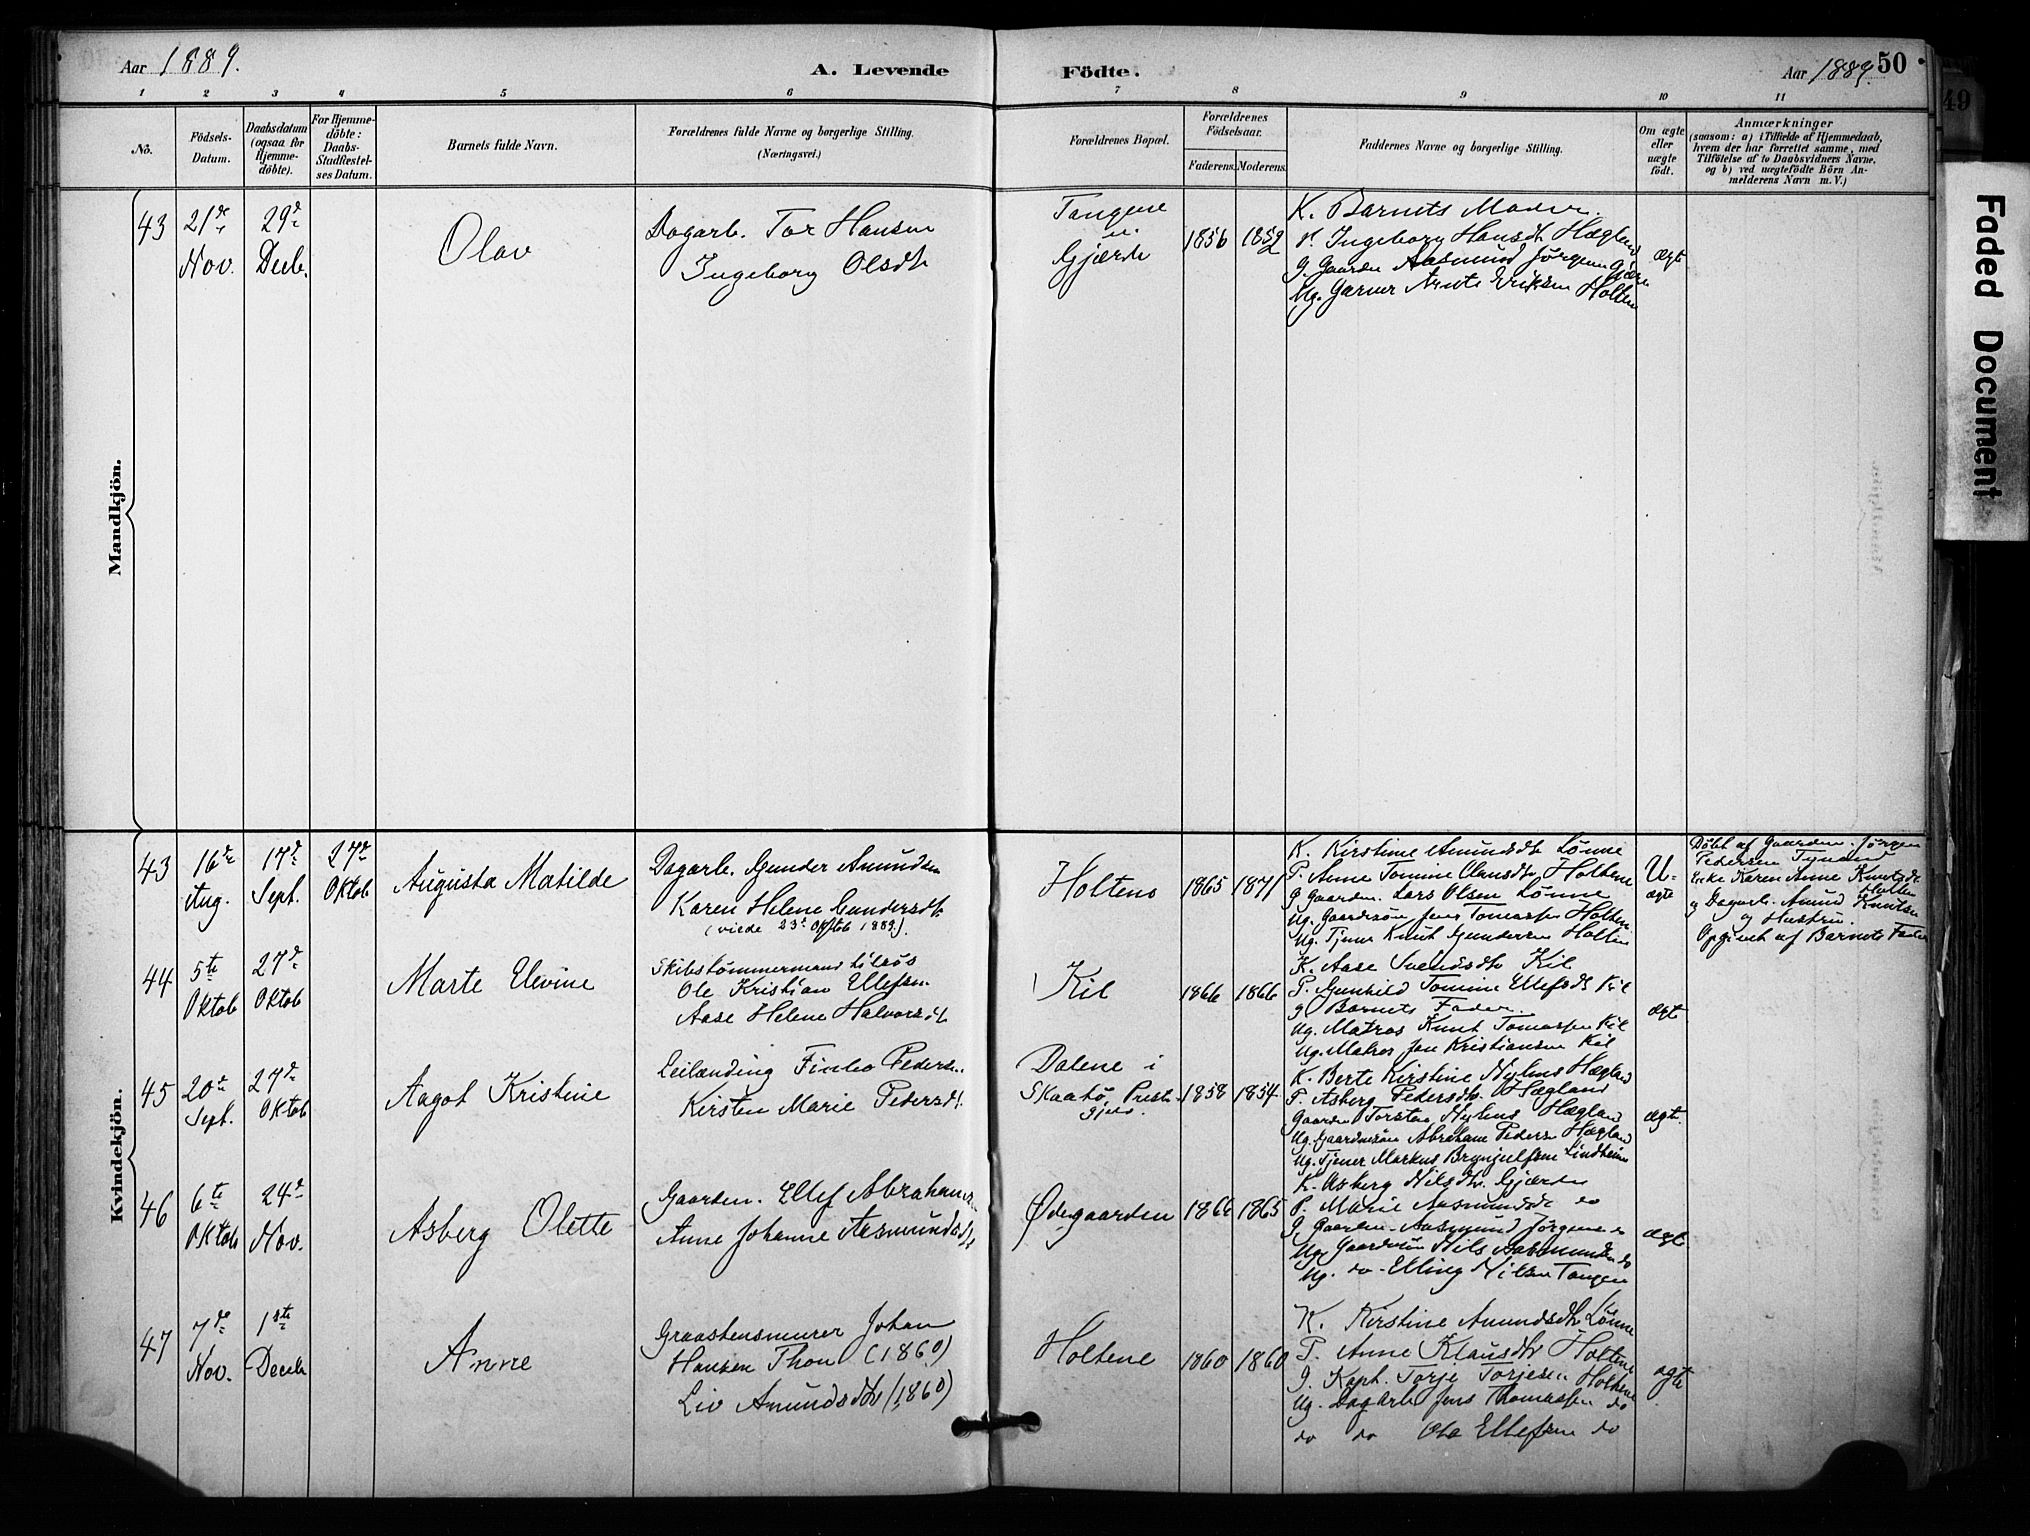 Aar 1889.
A. Levende
Födte.
Aar 1889.
50
49
Faded Document
1 2 3 4 5 6 7 8 9 10 11
No.
Födsels-
Datum.
Daabsdatum
(ogsaa for
Hjemme-
döbte).
For Hjemme-
döbte:
Daabs-
Stadfæstel-
ses Datum.
Barnets fulde Navn.
Forældrenes fulde Navne og borgerlige Stilling.
(Næringsvei.)
Forældrenes Bopæl.
Forældrenes
Födselsaar.
Faderens.
Moderens.
Faddernes Navne og borgerlige Stilling.
Om ægte
eller
uægte
födt.
Anmærkninger
(saasom: a) i Tilfælde af Hjemmedaab,
hvem der har forrettet samme, med
Tilföielse af to Daabsvidners Navne,
og b) ved uægtefödte Börn An-
melderens Navn m. V.)
Mandkjön.
43
21de
Nov.
29de
Decb.
Olav
Dagarb. Tor Hansen
Ingeborg Olsdt
Tangene
u.
Gjærde
1856
1852
K. Barnets Moder.
P. Ingeborg Hansdt Hægland
G. Gaardm Aasmund Jörgensen Gjærde
Ug. Garver Eriksen Holtene
ægte
Kvindekjön.
43
16de
Aug.
17de
Sept.
27de
Oktob
Augusta Matilde
Dagarb. Gunder Amundsen
Karen Helene Gundersdt.
(viede 23de Oktob 1889).
Holtene
1865
1871
K. Kirstine Amundsdt Lønne
P. Anne Tomine Clausdt. Holtene
G Gaardm. Lars Olsen Lønne
Ug. Gaardmsøn Jens Tomassen Holtene
Ug. Tjener Knut Gundersen Holtene
U-
ægte
Döbt af Gaardm. Jörgen
Pedersen
Enke Karen Anne Knutsdt
Holtene
og Dagarb. Amund Knutsen
og Hustru.
Opgivet af Barnets Fader
44
5te
Oktob
27de
Oktob
Marte Elevine
Skibstömmermand tilsös
Ole Kristian Ellefsen
Aase Helene Halvorsdt
Kil
1866
1866
K. Aase Svendsdt Kil
P. Gunhild Tomine Ellefsdt Kil
G Barnets Fader.
Ug. Matros Knut Tomassen Kil
Ug. Matros Jan Kristiansen Kil
ægte
45
20de
Sept.
27de
Oktob
Aagot Kristine
Leilænding Finbo Pedersen.
Kirsten Marie Pedersdt.
Dalene i
Skaatø Preste-
gjeld.
1858
1854
K. Berte Kirstine Hægland
P. Asberg Pedersdt. Hægland
Gaardm Torsten Hægland
Ug. Gaardmsön Abraham Pedersen Hægland
Ug. Tjener Markus Brynjulfsen Lindheim
ægte.
46
6te
Oktob
24de
Nov.
Asberg Olette
Gaardm. Ellef Abrahamsen
Anne Johanne Aasmundsdt
Ødegaarden
1866
1865
K. Asberg Nilsdt. Gjærde
P. Marie Aasmundsdt do
G. Gaardm. Aasmund Jörgensen
Ug. Gaardmsön Nils Aasmundsen do
Ug. do - Elling Nilsen Tangen
ægte
47
7de
Nov.
1ste
Decb
Anne
Graastensmurer Johan
Hansen Thon (1860)
Liv Amundsdtr (1860)
Holtene
1860
1860
K. Kirstine Amundsdtr Lönne
P. Anne Klausdtr Holtene
G. Kapt. Torje Torjesen Holtene
Ug. Dagarb. Jens Thomassen do
do do Ola Ellefsen do
ægte